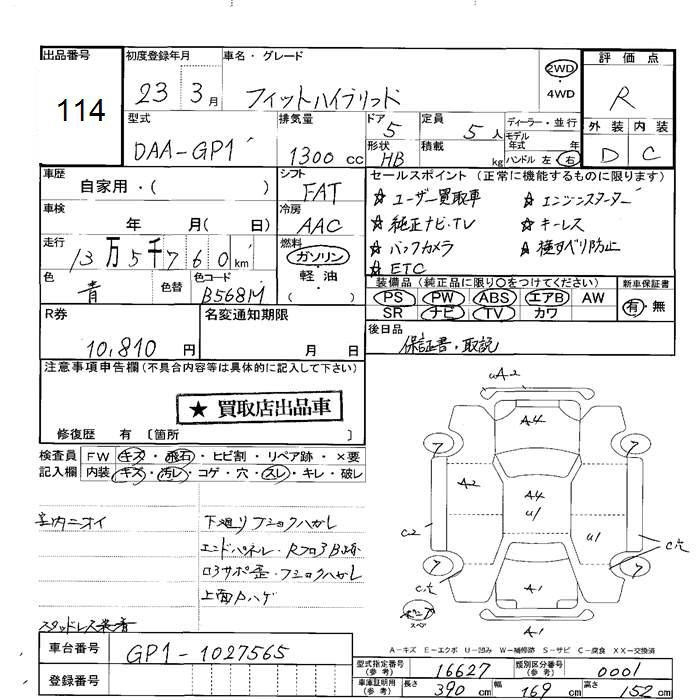 出品番号
114
初度登録年月
23 3月
車名・グレード
フィットハイブリッド
2WD
・4WD
評価点
R
外装 内装
D C
型式
DAA-GP1
排気量
1300 cc
ドア
5
定員
5人
ディーラー・並行
モデル
年式 年
形状
HB
積載
kg
ハンドル 左 右
車歴
自家用・( )
シフト
FAT
車検
年 月( 日)
冷房
AAC
走行
13万5千760km
燃料
ガソリン
・軽油
( )
色
青
色替
色コード
B568M
セールスポイント(正常に機能するものに限ります)
☆ユーザー買取車 ☆エンジンスターター
☆純正ナビ・TV ☆キーレス
☆バックカメラ ☆横すべり防止
☆ETC
装備品(純正品に限り〇をつけてください)
PS PW ABS エアB AW
SR ナビ TV カワ
新車保証書
有・無
後日品
保証書・取説
R券
10,810 円
名変通知期限
月 日
注意事項申告欄(不具合内容等は具体的に記入して下さい)
★ 買取店出品車
修復歴 有 〔箇所 〕
検査員 FW キズ・飛石・ヒビ割・リペア跡・×要
記入欄 内装 キズ・汚レ・コゲ・穴・スレ・キレ・破レ
室内ニオイ
下廻り
エンドパネル・
上面
スタッドレス装着
uA2
A4
7 7
A2 A4
u1 u1
C2
C穴
7 7
C穴
A1
A1
スペア
A-キズ E-エクボ U-凹み W-補修跡 S-サビ C-腐食 XX-交換済
車台番号
GP1-1027565
登録番号
型式指定番号
(参考)
16627
類別区分番号
(参考)
0001
車庫証明用
(参考)
長さ 390 cm 幅 169 cm 高さ 152 cm